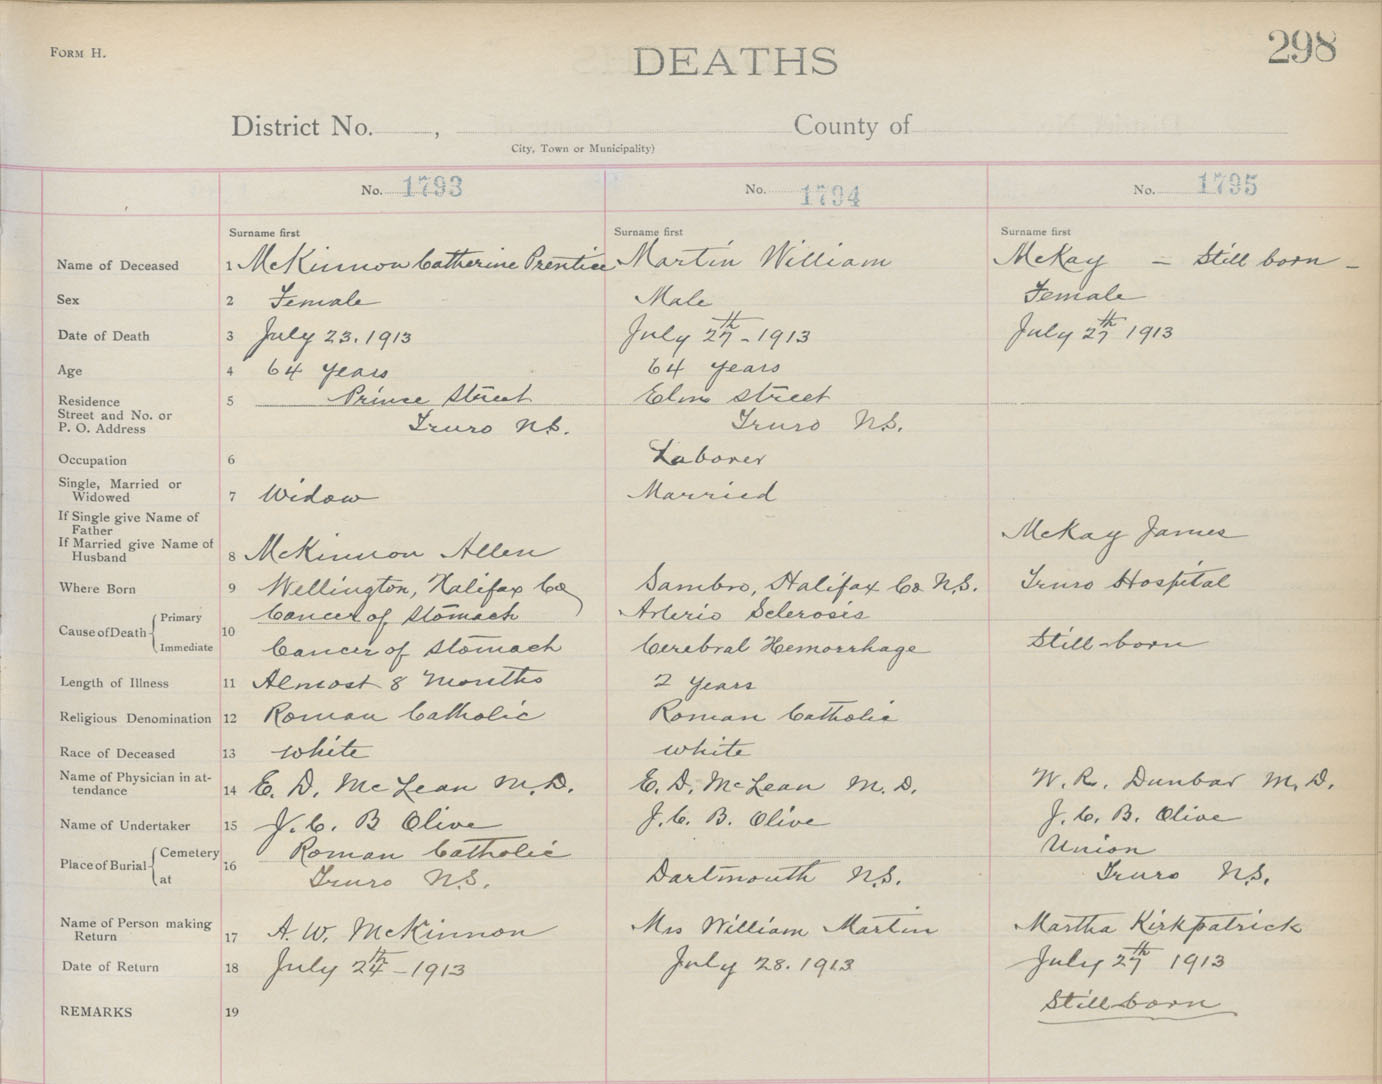 Form H.
DEATHS
298
District No. , County of
City, Town or Municipality)
No. 1793 No. 1794 No. 1795
Surname first Surname first Surname first
Name of Deceased 1 McKinnon Catherine Prentice Martin William McKay - Still born -
Sex 2 Female Male Female
Date of Death 3 July 23. 1913 July 27th - 1913 July 27th 1913
Age 4 64 years 64 years
Residence 5 Prince Street Elm Street
Street and No. or
P. O. Address Truro N.S. Truro N.S.
Occupation 6 Laborer
Single, Married or
Widowed 7 Widow Married
If Single give Name of
Father McKay James
If Married give Name of
Husband 8 McKinnon Allen
Where Born 9 Wellington, Halifax Co Sambro, Halifax Co N.S. Truro Hospital
Cause of Death Primary Cancer of Stomach Arterio Sclerosis
10 Immediate Cancer of Stomach Cerebral Hemorrhage Still-born
Length of Illness 11 Almost 8 Months 2 years
Religious Denomination 12 Roman Catholic Roman Catholic
Race of Deceased 13 White White
Name of Physician in at-
tendance 14 E. D. McLean M.D. E. D. McLean M. D. W. R. Dunbar M. D.
Name of Undertaker 15 J. C. B Olive J. C. B. Olive J. C. B. Olive
Place of Burial Cemetery Roman Catholic Union
16 at Truro N.S. Dartmouth N.S. Truro N.S.
Name of Person making
Return 17 A. W. McKinnon Mrs William Martin Martha Kirkpatrick
Date of Return 18 July 24th - 1913 July 28. 1913 July 27th 1913
REMARKS 19 Still-born